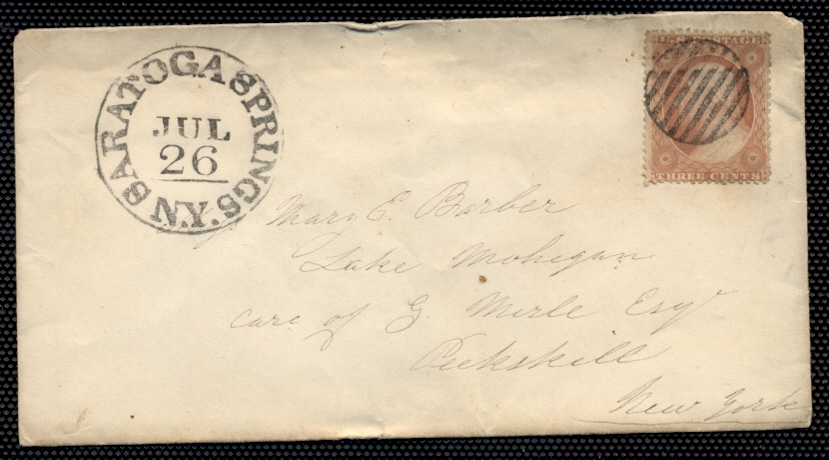 SARATOGA SPRINGS. N.Y.
JUL
26
U.S. POSTAGE
THREE CENTS
Mary E. Barber
Lake Mohegan
care of G. Merle Esqr
Peekskill
New York